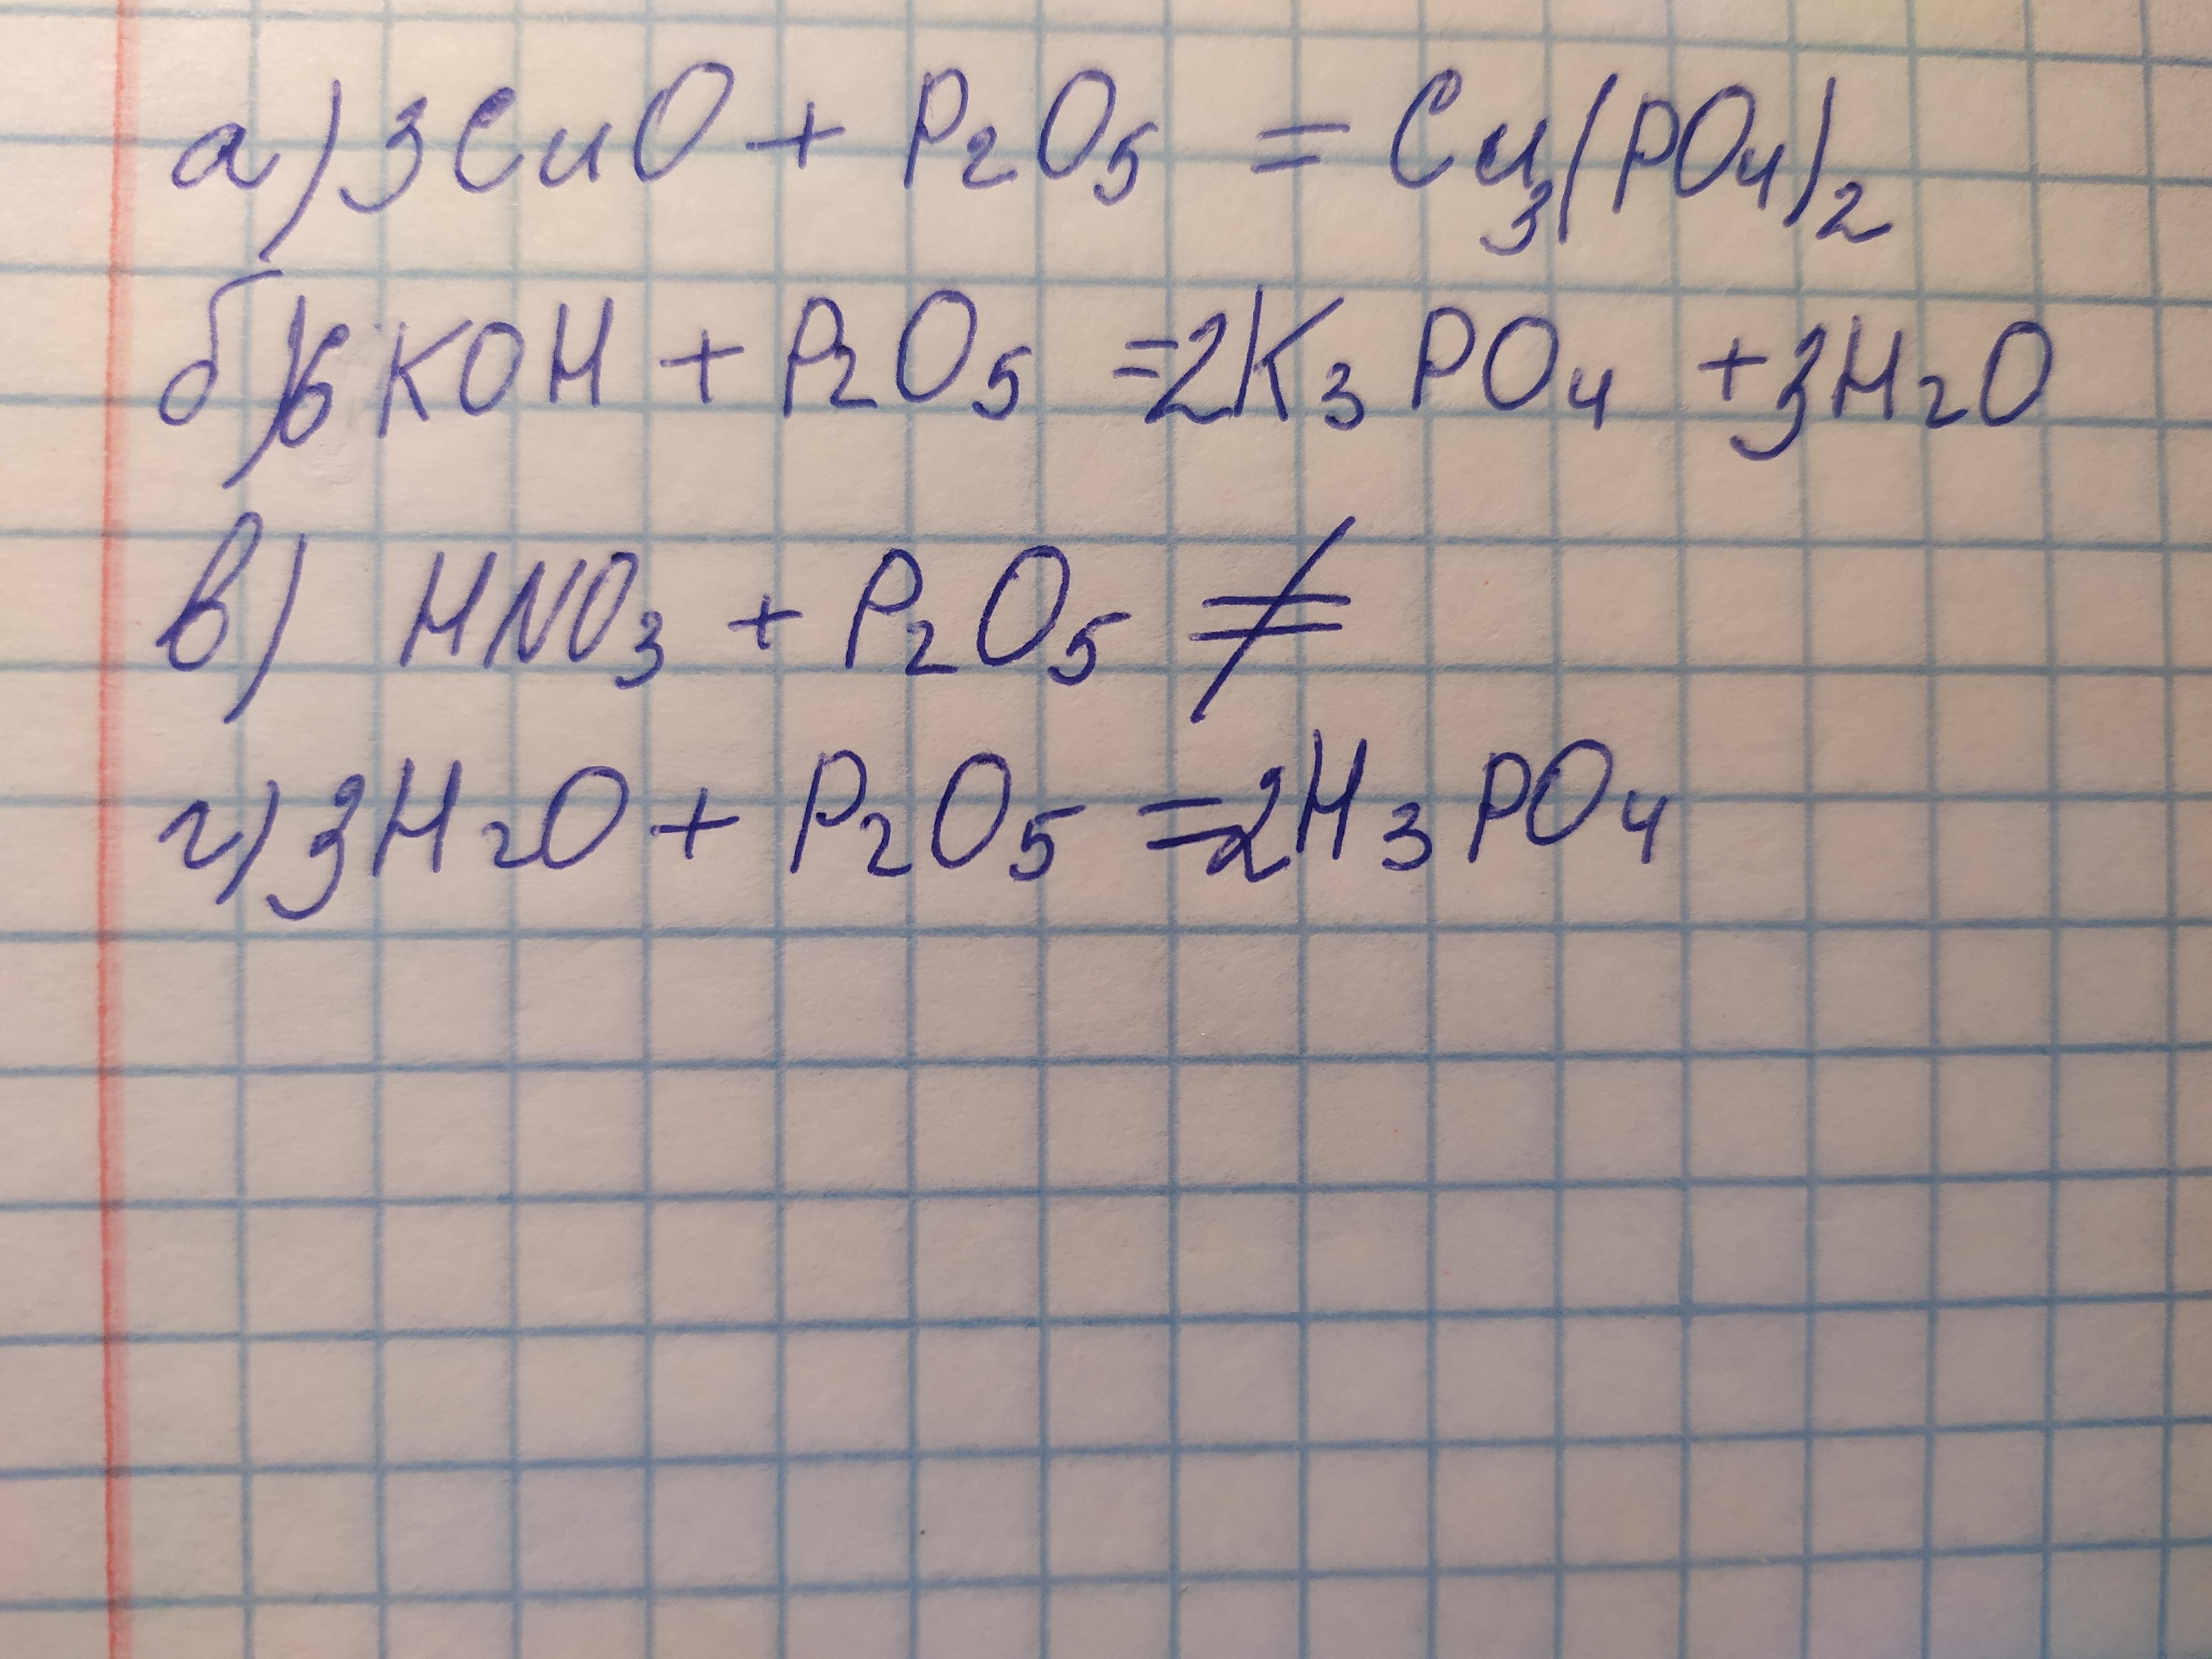 а) 3CuO + P₂O₅ = Cu₃(PO₄)₂
б) 6KOH + P₂O₅ =2K₃PO₄ +3H₂O
в) HNO₃ + P₂O₅ ≠
г) 3H₂O + P₂O₅ =2H₃PO₄